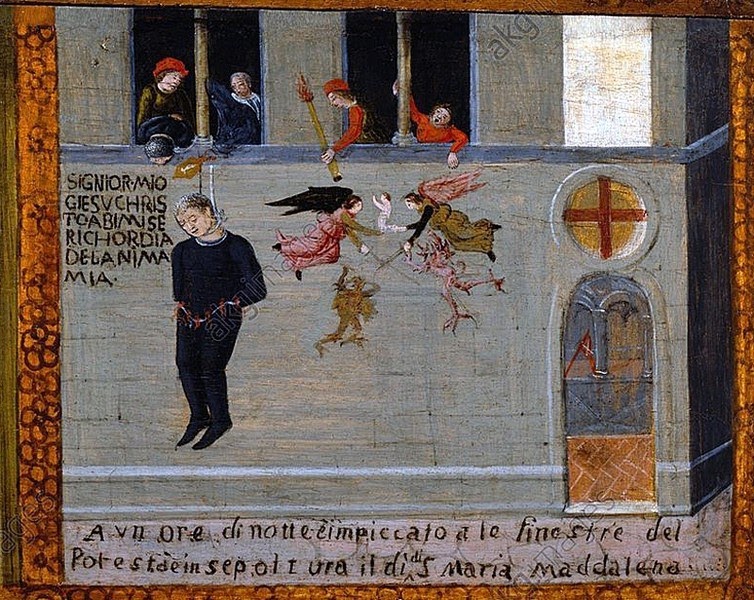 SIGNIOR·MIO
GIESV CHRIS
TO ABI MISE
RICHORDIA
DE LANIMA
MIA·
A vn ore di notte è impiccato a le finestre del
Potestà è in sepoltura il dì di S Maria Maddalena
akg-images